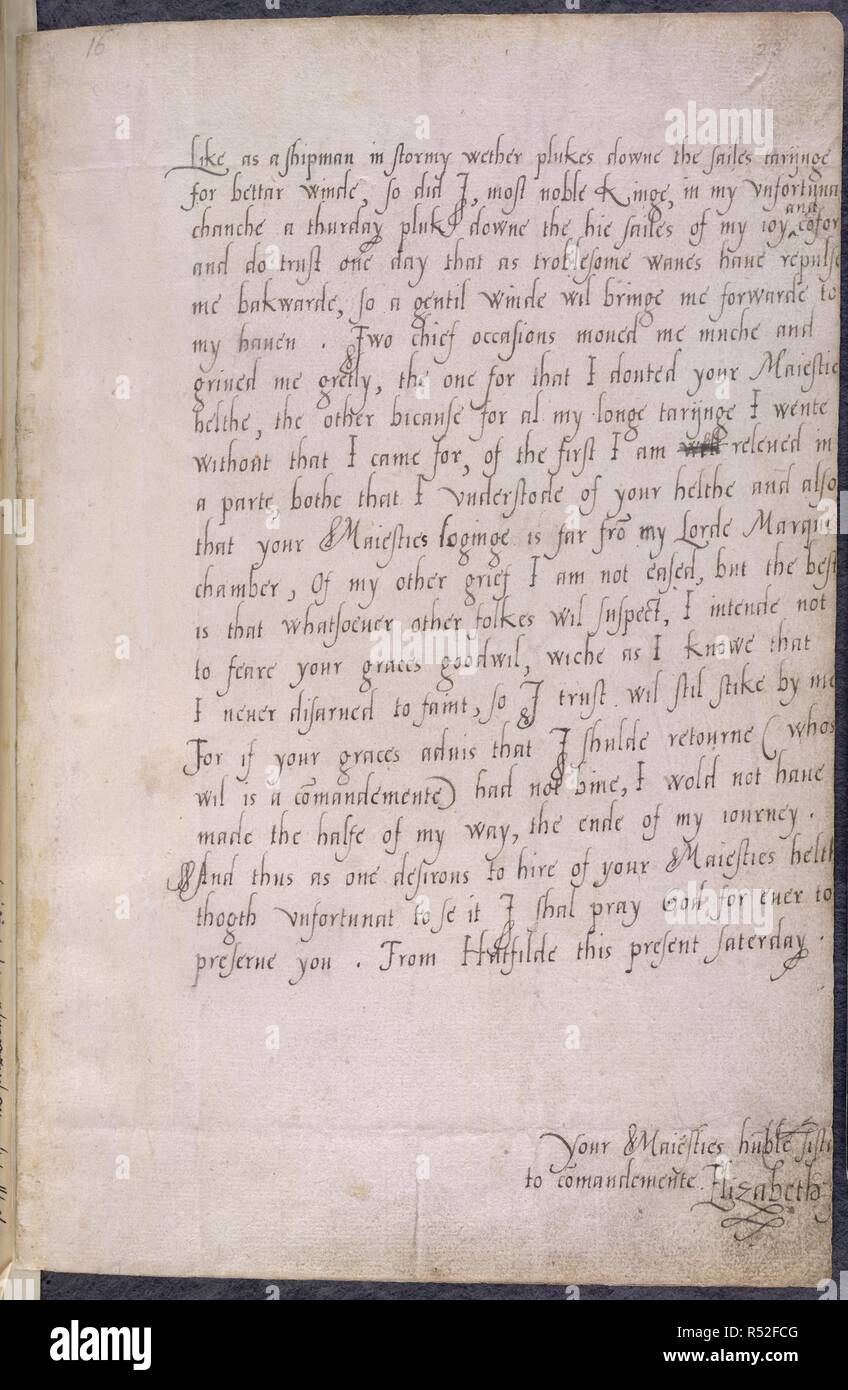 16
23
Like as a shipman in stormy wether plukes downe the sailes tarijnge
for bettar winde, so did I, most noble Kinge, in my vnfortuna
chanche a thurday pluk downe the hie sailes of my ioy and cõfor
and do trust one day that as troblesome waues haue repulse
me bakwarde, so a gentil winde wil bringe me forwarde to
my hauen . Two chief occasions moued me muche and
griued me gretly, the one for that I douted your Maiestie
helthe, the other bicause for al my longe tarijnge I wente
without that I came for, of the first I am releued in
a parte, bothe that I vnderstode of your helthe and also
that your Maiesties loginge is far frõ my Lorde Marqui
chamber, Of my other grief I am not eased, but the best
is that whatsoeuer other folkes wil suspect, I intende not
to feare your graces goodwil, wiche as I knowe that
I neuer disarued to faint, so I trust wil stil stike by me
For if your graces aduis that I shulde retourne (whos
wil is a cõmandemente) had not bine, I wold not haue
made the halfe of my way, the ende of my iourney .
And thus as one desirous to hire of your Maiesties helth
thogth vnfortunat to se it I shal pray God for euer to
preserue you . From Hatfilde this present saterday .
Your Maiesties hũble sistar
to cõmandemente Elizabeth
alamy
Image ID: R52FCG
www.alamy.com